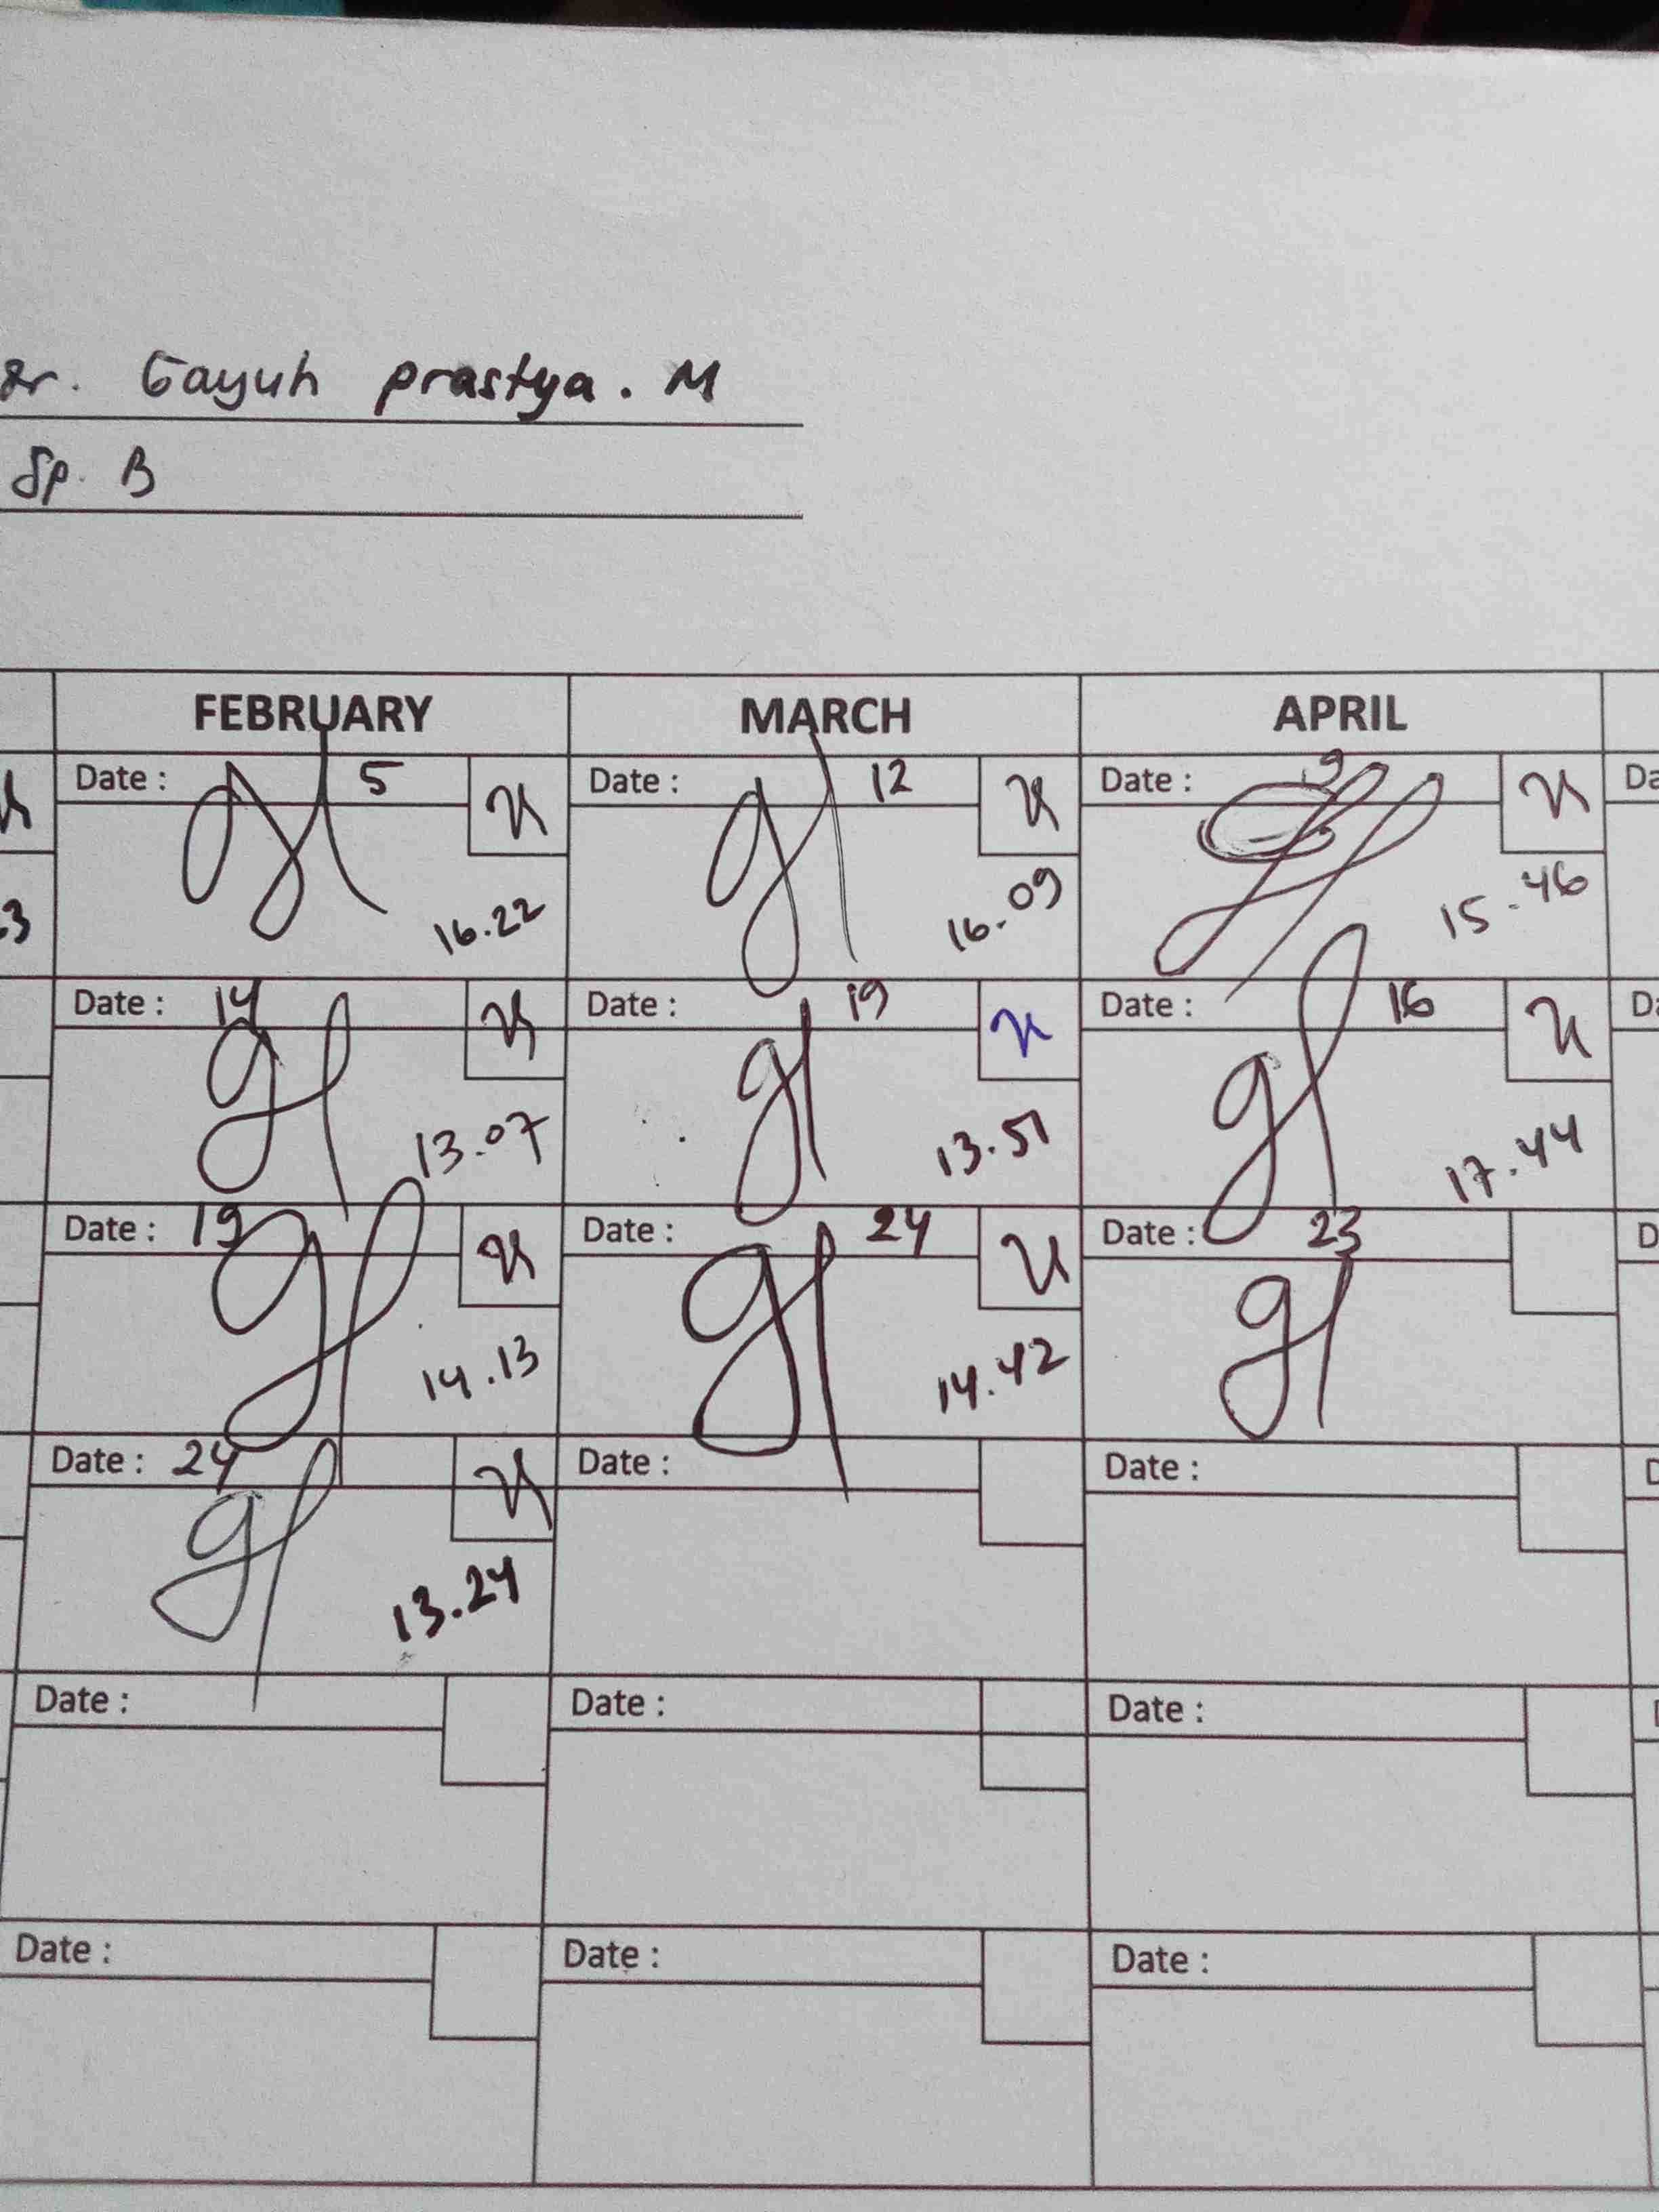 dr. Gayuh prastya. M
Sp. B
FEBRUARY MARCH APRIL
Date : 5 Date : 12 Date : 9 Da
16.22 16.09 15.46
.3
Date : 14 Date : 19 Date : 16 Da
13.07 13.51 17.44
Date : 19 Date : 24 Date : 23 D
14.13 14.42
Date : 24 Date : Date : D
13.24
Date : Date : Date :
Date : Date : Date :